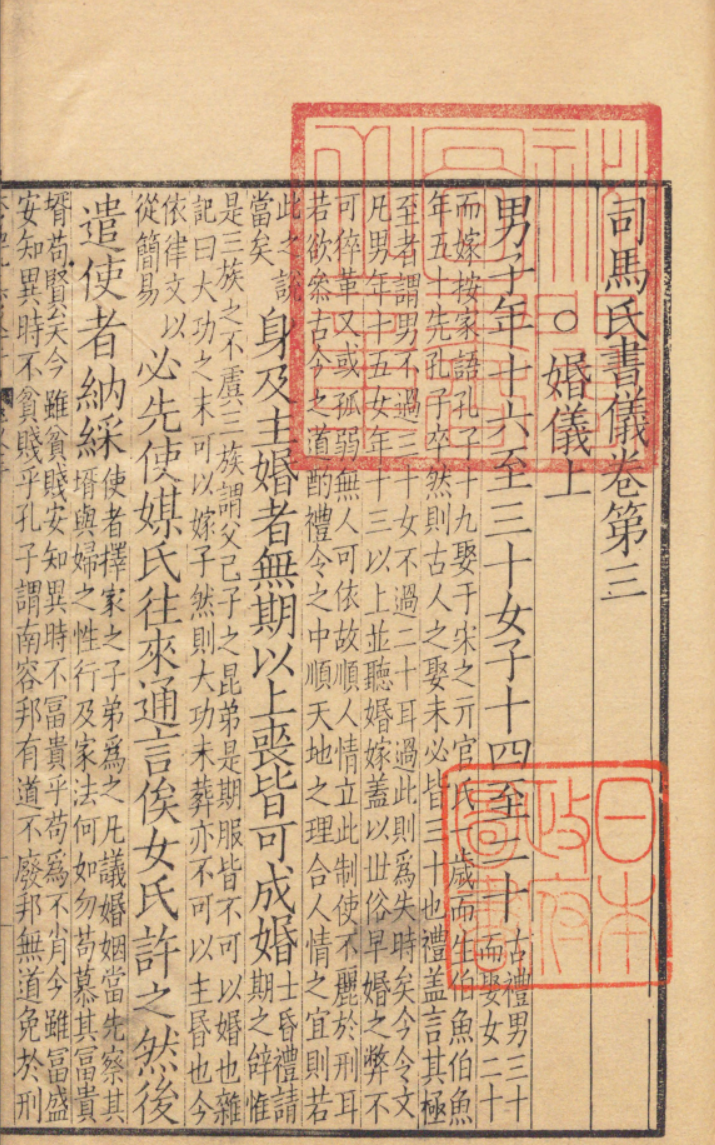 司馬氏書儀卷第三
○婚儀上
男子年十六至三十女子十四至二十
古禮男三十
而娶女二十
而嫁按家語孔子十九娶于宋之亓官氏一歲而生伯魚伯魚
年五十先孔子卒然則古人之娶未必皆三十也禮蓋言其極
至者謂男不過三十女不過二十耳過此則爲失時矣今令文
凡男年十五女年十三以上並聽婚嫁蓋以世俗早婚之弊不
可倅革又或孤弱無人可依故順人情立此制使不麗於刑耳
若欲叅古今之道酌禮令之中順天地之理合人情之宜則若
此之說
當矣
身及主婚者無期以上喪皆可成婚
士昏禮請
期之辭惟
是三族之不虞三族謂父己子之昆弟是期服皆不可以婚也雜
記曰大功之末可以嫁子然則大功未葬亦不可以主昏也今
依律文以
從簡易
必先使媒氏往來通言俟女氏許之然後
遣使者納綵
使者擇家之子弟爲之凡議婚姻當先察其
壻與婦之性行及家法何如勿苟慕其冨貴
壻苟賢矣今雖貧賤安知異時不冨貴乎苟爲不肖今雖冨盛
安知異時不貧賤乎孔子謂南容邦有道不廢邦無道免於刑
日本
政府
圖書